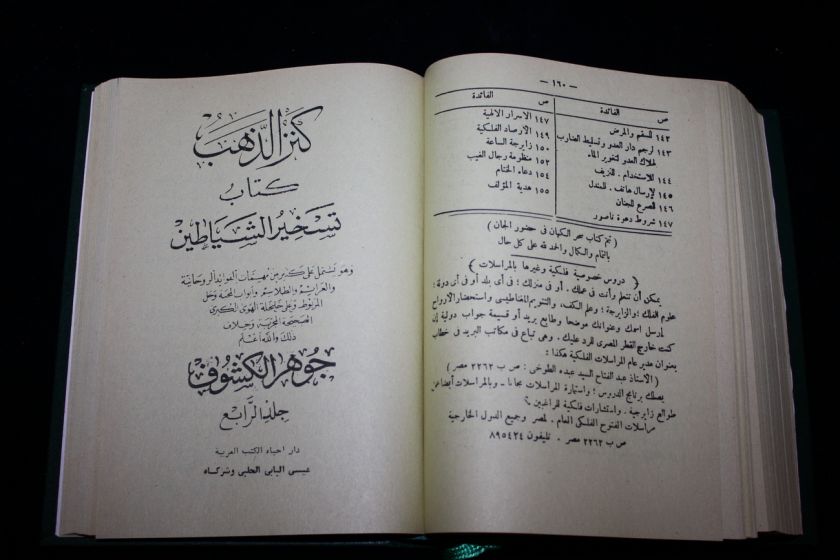 — ١٦٠ —
ص الفائدة
١٤٢ للسقم والمرض
١٤٣ لرجم دار العدو وتسليط
لهلاك العدو لتغوير الماء
١٤٤ للاستخدام . للنزيف
١٤٥ لإرسال هاتف . للمندل
١٤٦ لصرع للجنان
١٤٧ شروط دعوة ناصور
ص الفائدة
١٤٧ الاسرار الالهية
١٤٩ الارصاد الفلكية
١٥٠ زايرجة الساعة
١٥٢ منظومة رجال الغيب
١٥٤ دعاء الختام
١٥٥ هدية المؤلف
( تم كتاب سحر الكهان فى حضور الجان )
بالتمام والكمال والحمد لله على كل حال
( دروس خصوصية فلكية وغيرها بالمراسلات )
يمكن أن تتعلم وأنت فى عملك . أو فى منزلك ؛ فى أى بلد أو فى أى دولة ؛
علوم الفلك ؛ والزايرجة ؛ وعلم الكف ، والتنويم المغناطيسى واستحضار الأرواح
إرسل اسمك وعنوانك موضحا وطابع بريد أو قسيمة جواب دولية إن
كنت خارج القطر المصرى للرد عليك . وهى تباع فى مكاتب البريد فى خطاب
بعنوان مدير عام المراسلات الفلكية هكذا :
( الأستاذ عبد الفتاح السيد عبده الطوخى : ص ب ٢٢٦٢ مصر )
يصلك برنامج الدروس ؛ واستمارة المراسلات مجانا . وبالمراسلات أيضا
طوالع زايرجية . واستشارات فلكية للراغبين
مراسلات الفتوح الفلكى العام . لمصر وجميع الدول الخارجية
ص ب ٢٢٦٢ مصر . تليفون ٨٩٥٤٢٤
كنز الذهب
كتاب
تسخير الشياطين
وهو يشتمل على كثير من مهمات الفوائد الروحانية
والعزائم والطلاسم وأبواب المحبة وحل
المربوط وعلى الهوى الكبرى
الصحيحة المجربة وخلاف
ذلك والله أعلم
جوهر الكشوف
جلد الرابع
دار احياء الكتب العربية
عيسى البابى الحلبى وشركاه